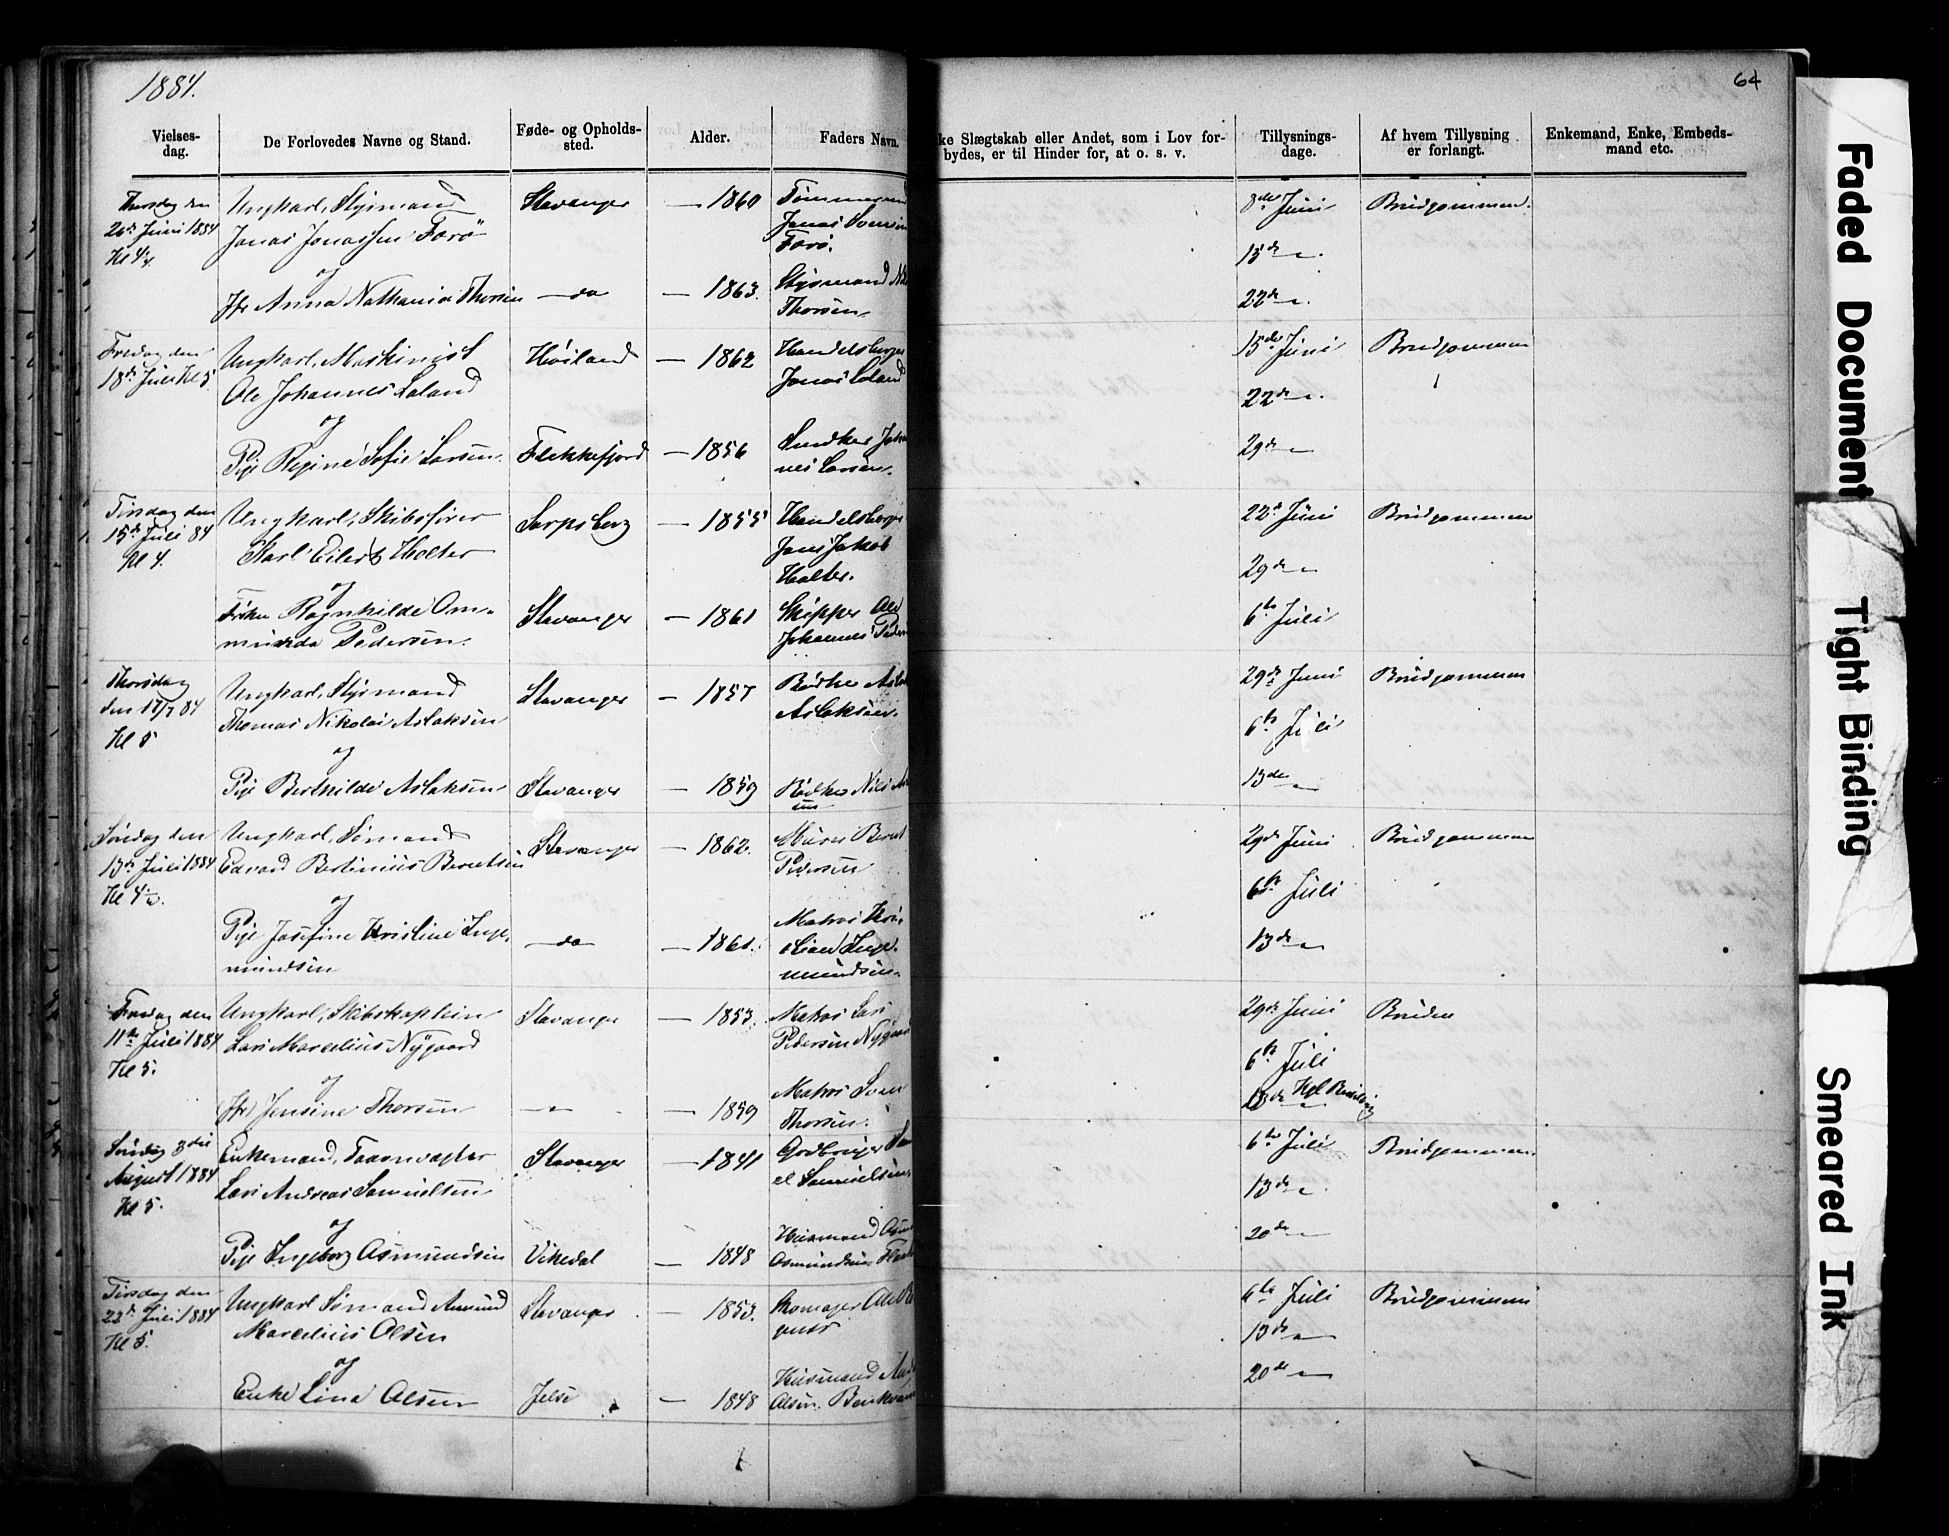 1884.
64
Vielses-
dag.
De Forlovedes Navne og Stand.
Føde- og Opholds-
sted.
Alder.
Faders Navn.
ke Slægtskab eller Andet, som i Lov for-
bydes, er til Hinder for, at o. s. v.
Tillysnings-
dage.
Af hvem Tillysning
er forlangt.
Enkemand, Enke, Embeds-
mand etc.
Thorsdag den Ungkarl, Styrmand Stavanger — 1860 8de Juni Brudgommen.
Juni 1884 Jonas Jonassen Farø Jonas
Farø.
15de
og
Jfr Anna Nathania Thorsen — do — 1863. Styrmand
Thorsen
22de
Fredag den Ungkarl, Maskinist Høiland — 1862 Handelsborger 15de Juni Brudgommen
18de Juli Kl 5 Ole Johannes Laland Jonas Laland
22de
og
Pige Regine Sofie Larsen Flekkefjord — 1856 Snedker Joha
nes Larsen.
29de
Tirsdag den Ungkarl, Skibsfører Sarpsborg — 1855 Handelsborger 22de Juni Brudgommen
15de Juli 84 Karl Eilert Holter Jens Jakob
Kl 4. Holter.
29de
og
Frøken Ragnhilde Om- Stavanger — 1861 Skipper Ole 6te Juli
munda Pedersen. Johannes Peder
Thorsdag Ungkarl, Styrmand Stavanger — 1857 Bødker Asla 29de Juni Brudgommen
den 17/7 84 Thomas Nikolai Aslaksen Aslaksen.
Kl 5
6te Juli
og
Pige Berthilde Aslaksen Stavanger — 1859 Bødker Nils
sen
13de
Søndag den Ungkarl, Sømand Stavanger — 1862. Murer Bernt 29de Juni Brudgommen
13de Juli 1884 Edvard Bertinius Berntsen Pedersen
Kl 4½.
6te Juli
og
Pige Josefine Kristine Inge- — do — — 1861. Matros Kri-
mundsen stian Inge-
mundsen.
13de
Fredag den Ungkarl, Skibskaptein Stavanger — 1853. Matros Lars 29de Juni Bruden
11te Juli 1884 Lars Marcelius Nygaard Pedersen Nygaard
Kl 5.
6te Juli
og
Jfr Jensine Thorsen — 1859 Matros Sven
Thorsen.
13de Kgl
Søndag 3die Enkemand, Taarnvægter Stavanger — 1841 Gaardbruger Samu 6te Juli Brudgommen
August 1884 Lars Andreas Samuelsen el Samuelsen
Kl 5.
13de
og
Pige Ingeborg Osmundsen Vikedal — 1848 Husmand
Osmundsen
20de
Tirsdag den Ungkarl Sømand Amund Stavanger — 1853. Skomager Ole 6te Juli Brudgommen
22de Juli 1884 Marcelius Olsen
Kl 5.
13de
og
Enke Lina Olsen Jelse — 1848 Husmand
Olsen
20de
Faded Document
Tight Binding
Smeared Ink